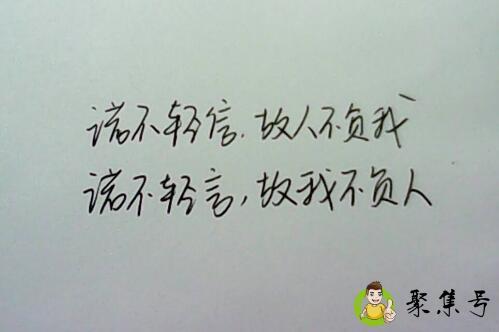 诺不轻信.故人不负我
诺不轻言,故我不负人
聚集号